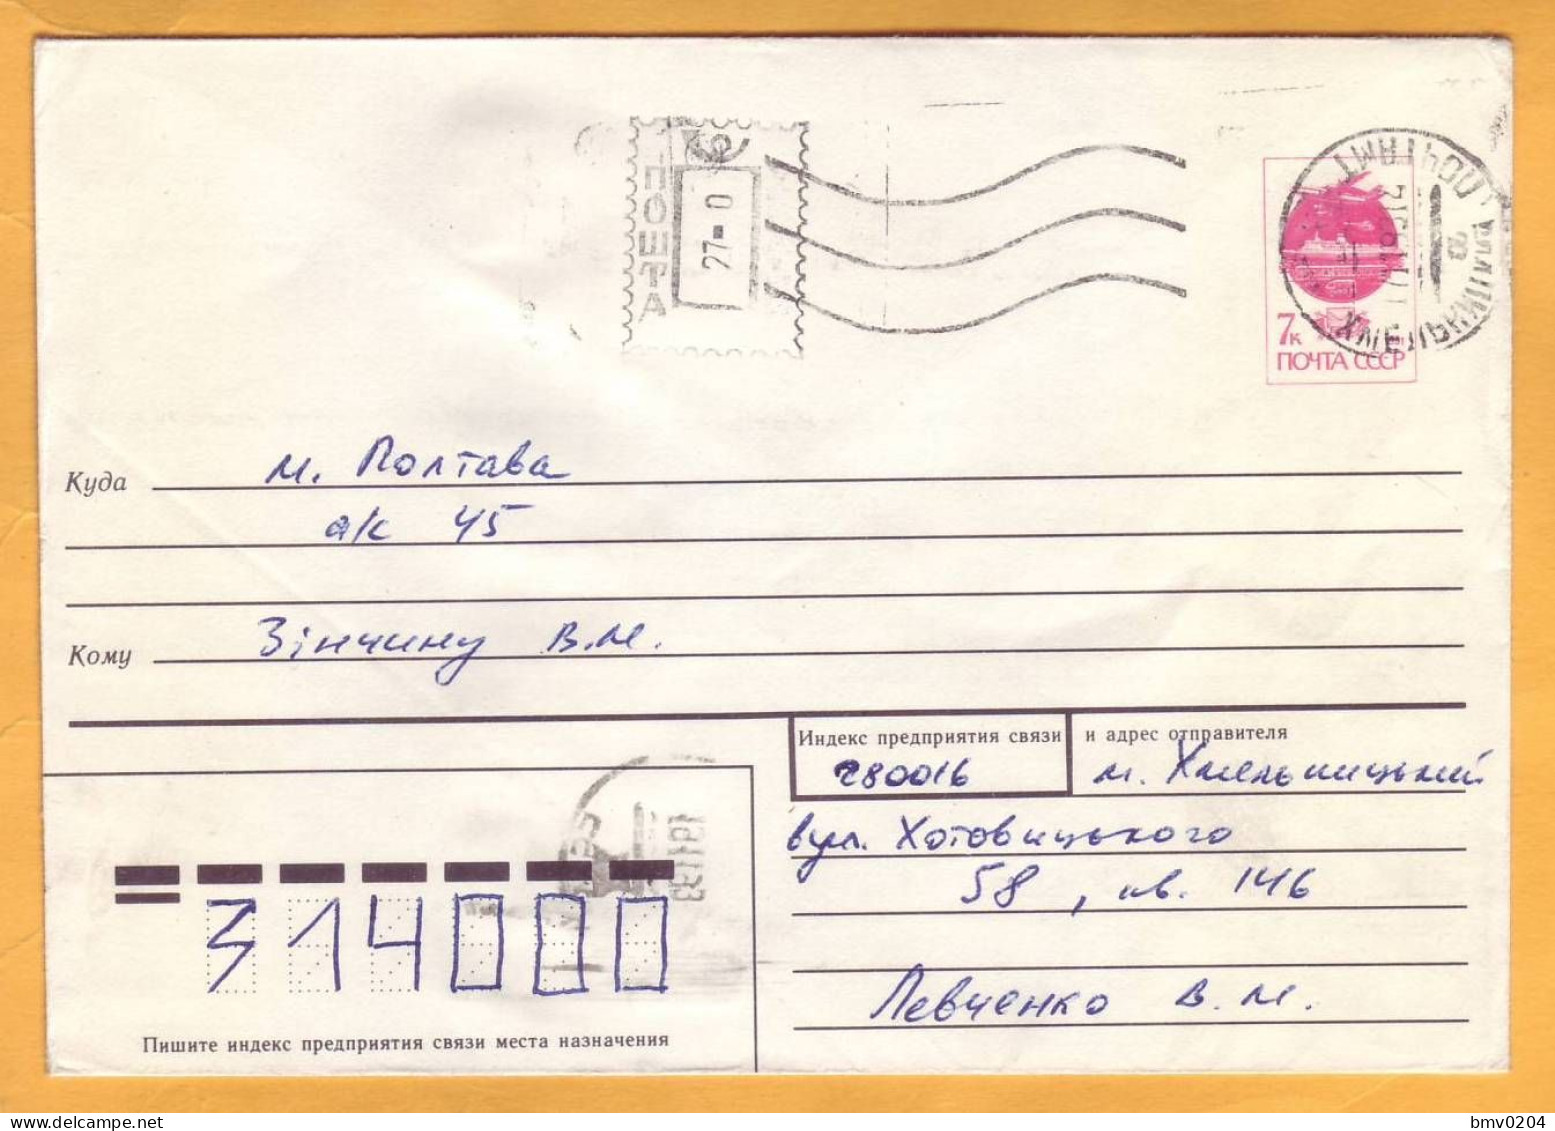 ПОШТА
27 0
ПОЧТАМТ
ХМЕЛЬНИЦКИЙ
7к
ПОЧТА СССР
Куда м. Полтава
а/с 45
Кому Зінчину В.М.
Индекс предприятия связи и адрес отправителя
280016 м. Хмельницький
вул. Хотовицького
58, кв. 146
Левченко В.М.
314000
Пишите индекс предприятия связи места назначения
bmv0204